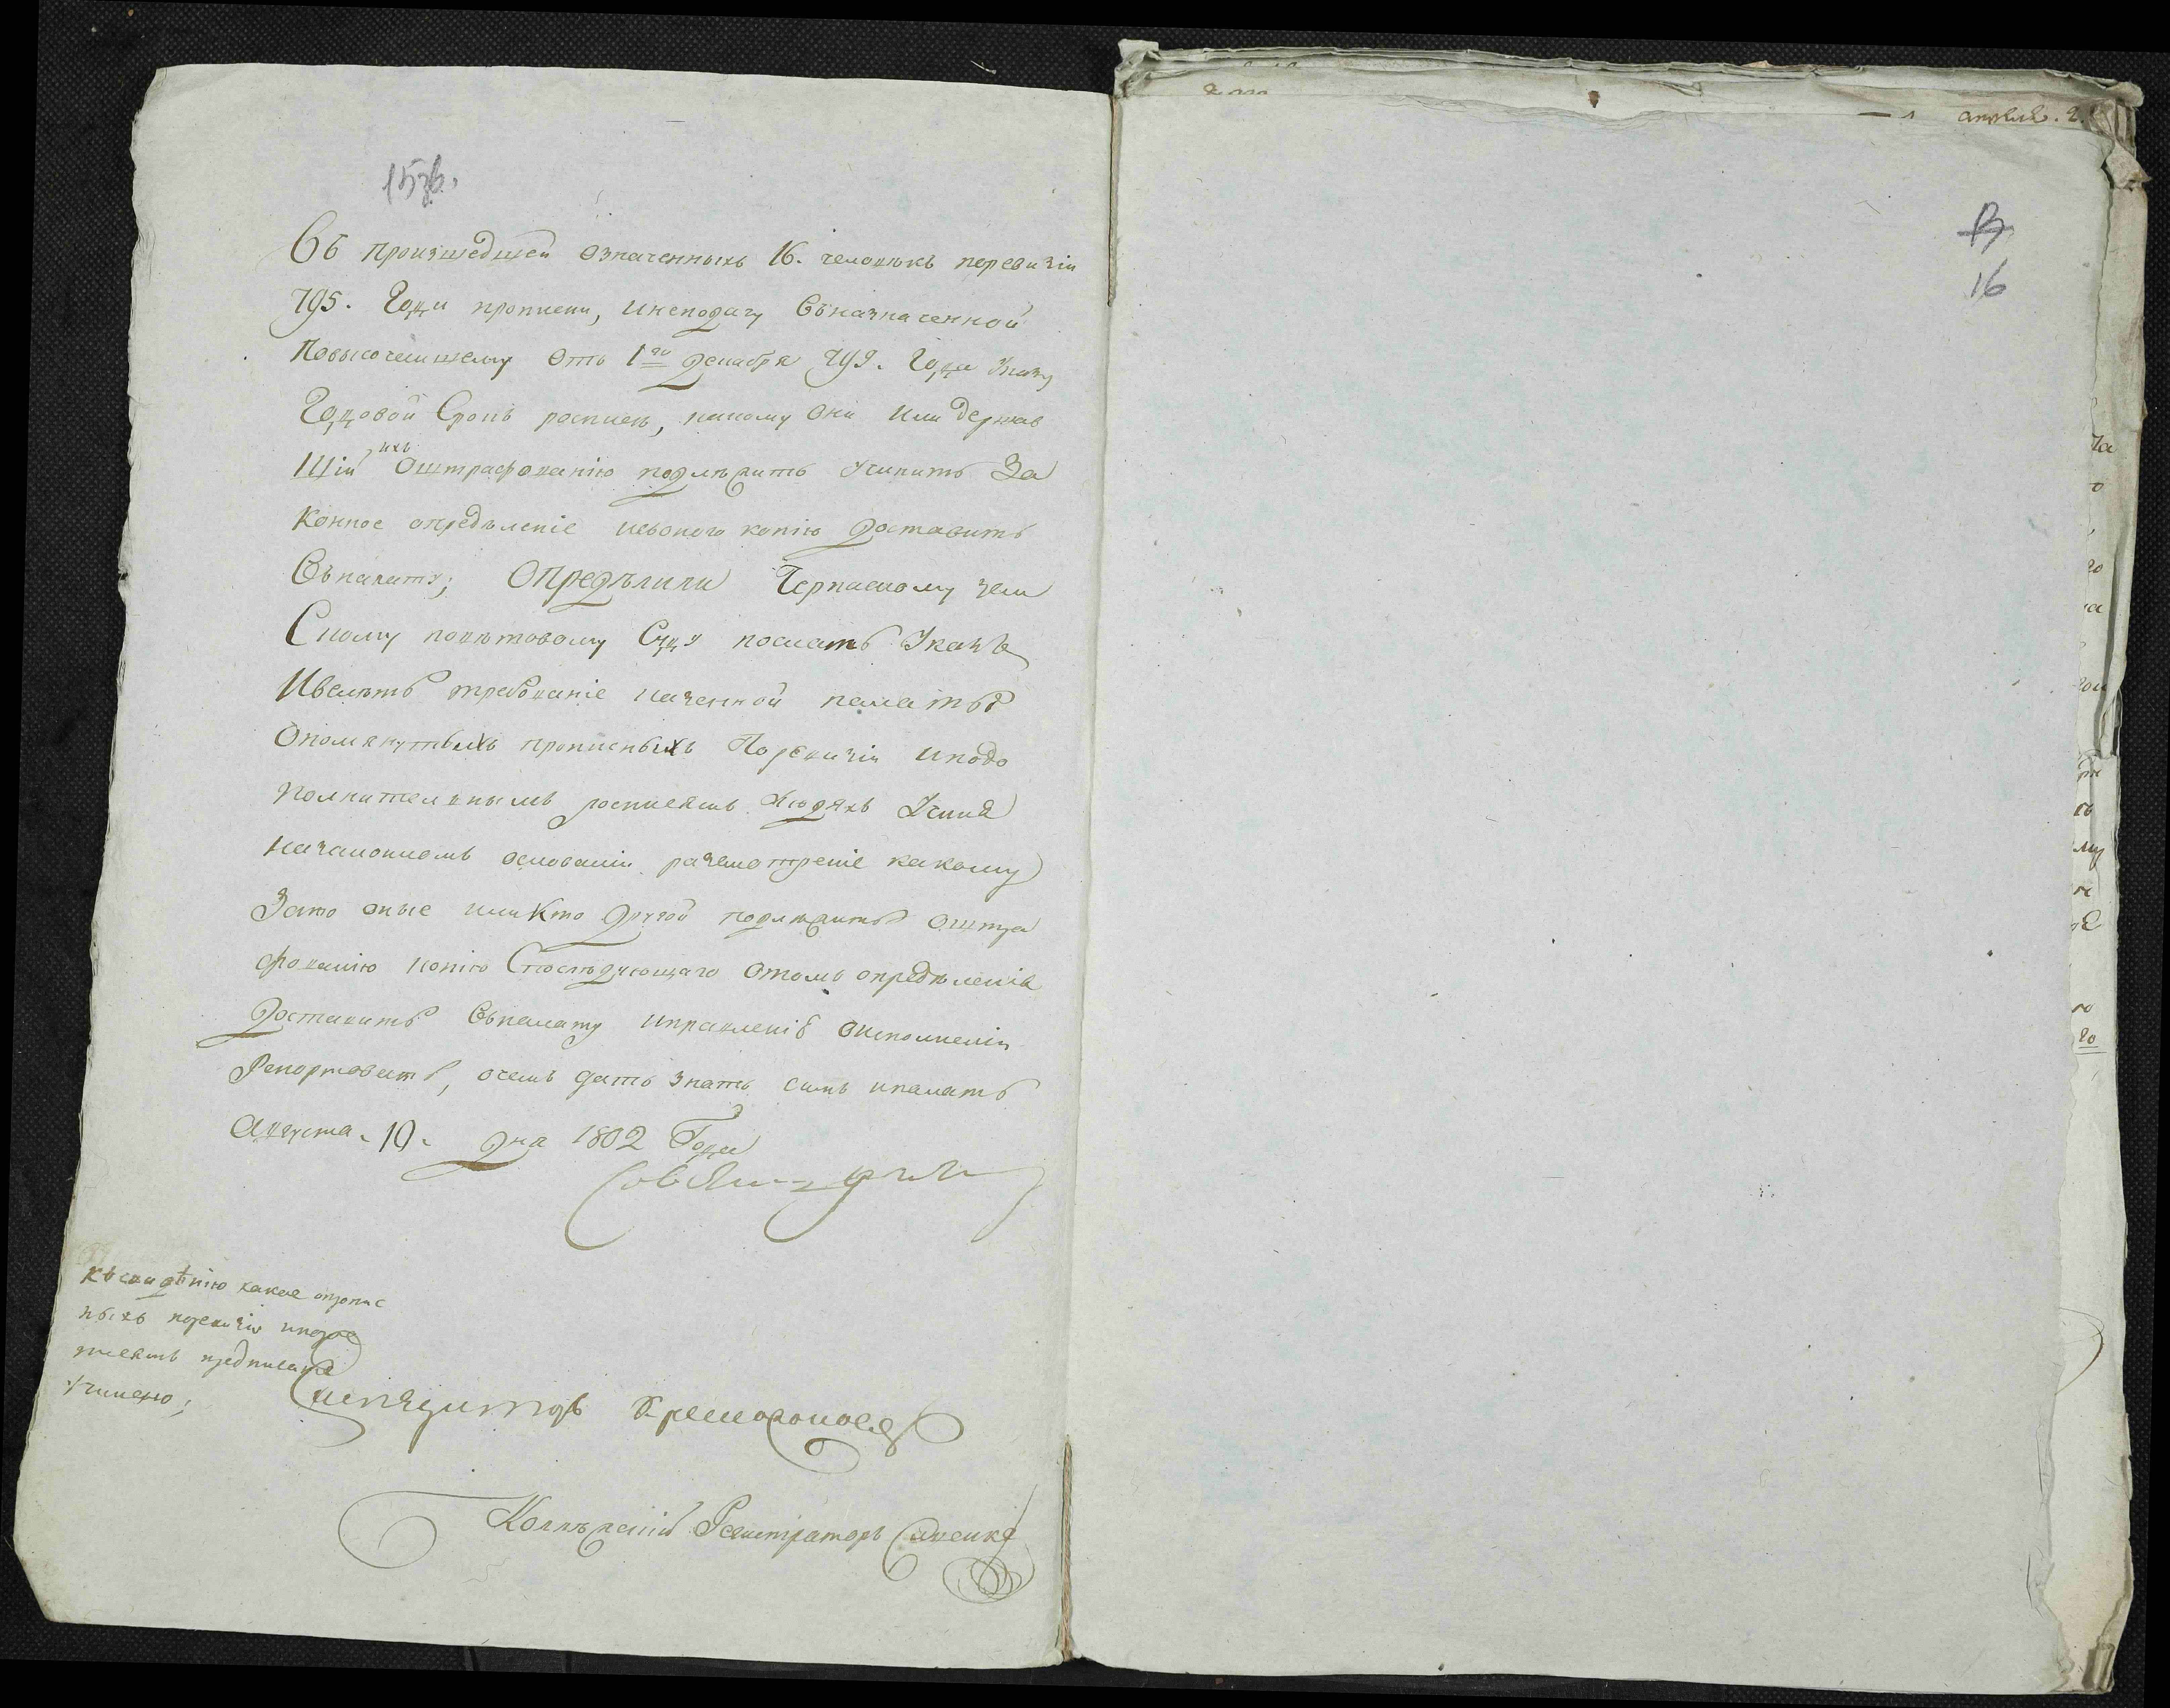 15зв.
Въ произшедшей означенныхъ 16. человѣкъ поревизіи
795. Года прописки, инеподачу Въназначенной
Повысочеишему отъ 1го декабря 799. Года Указу
Годовой Срокъ росписк, какому они или держав
Шій ихъ Оштрафованію подлѣжитъ Учинить За
Конное опредѣленіе исъоного копію доставить
Въпалату; Опредѣлили Черкаскому зем
Скому поветовому Суду послать Указъ
Ивелѣть требованіе казенной палаты
Опомянутыхъ прописныхъ Поревизіи иподо
полнителнымъ роспискамъ людяхъ Учиня
Назаконномъ основаніи разсмотреніе какому
Зато оные иликто другой подлѣжитъ оштра
фованію копію Споследующаго отомъ опредѣленія
Доставить Въпалату иправленіе оисполненіи
Репортовать, очемъ дать знать симъ ипалатъ
Августа. 10. дня 1802 Года
Къ сведѣнію какое опропис
ныхъ поревизіи
предписание
учинено;
Колѣжскій Регистраторъ
апреля. 2.
16